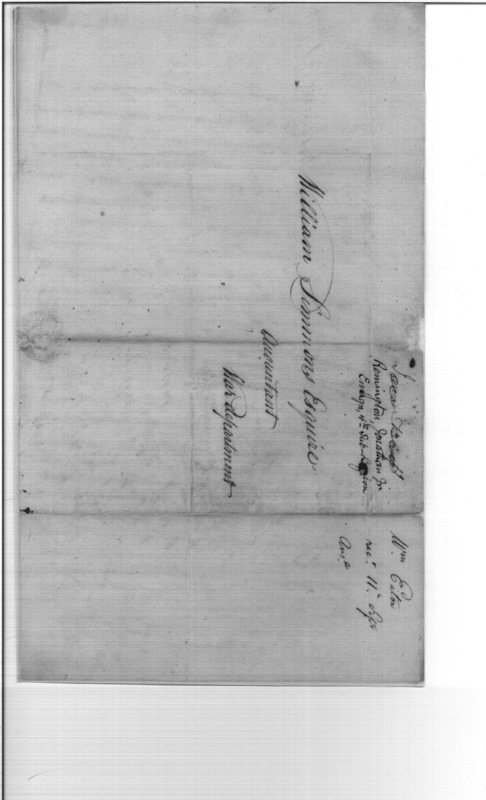 William Simmons Esquire
Accountant
War department
Remington Jonathan Jr
Ensign, 4th Sub-Legion
Wm Eaton
rec'd 11th
Ans'd